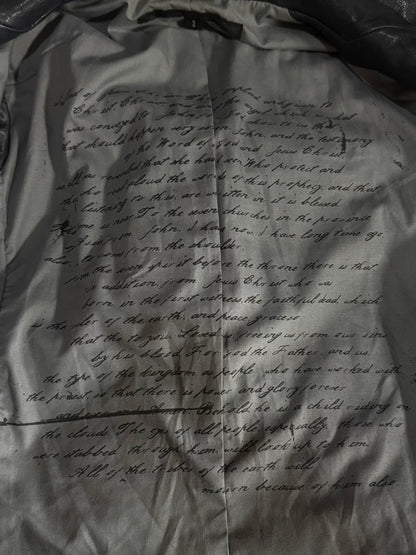 was conveyed to
that should happen very soon. John, and the testimony
of the Word of God and Jesus Christ
well as revealed that she had seen. Who protect and
this has read aloud the words of this prophecy, and that
listening to this, are written in it is blessed.
time is near. To the seven churches in the province
Asia from John, I have now, I have long time ago
also to come from the shoulder
from the seven spirit before the throne there is that
in addition, from Jesus Christ who was
born in the first witness, the faithful dead, which
is the ruler of the earth, and peace, graceso
that the to you. Loved is freeing us from our sins
by his blood. For God the Father, and us.
the type of the kingdom as people who have worked with
the priest, is that there is power and glory forever
and ever and Amen. Behold, he is a child riding on
the clouds. The eyes of all people especially, those who
were stabbed through him, will look up to him.
All of the tribes of the earth will
mourn because of him also.